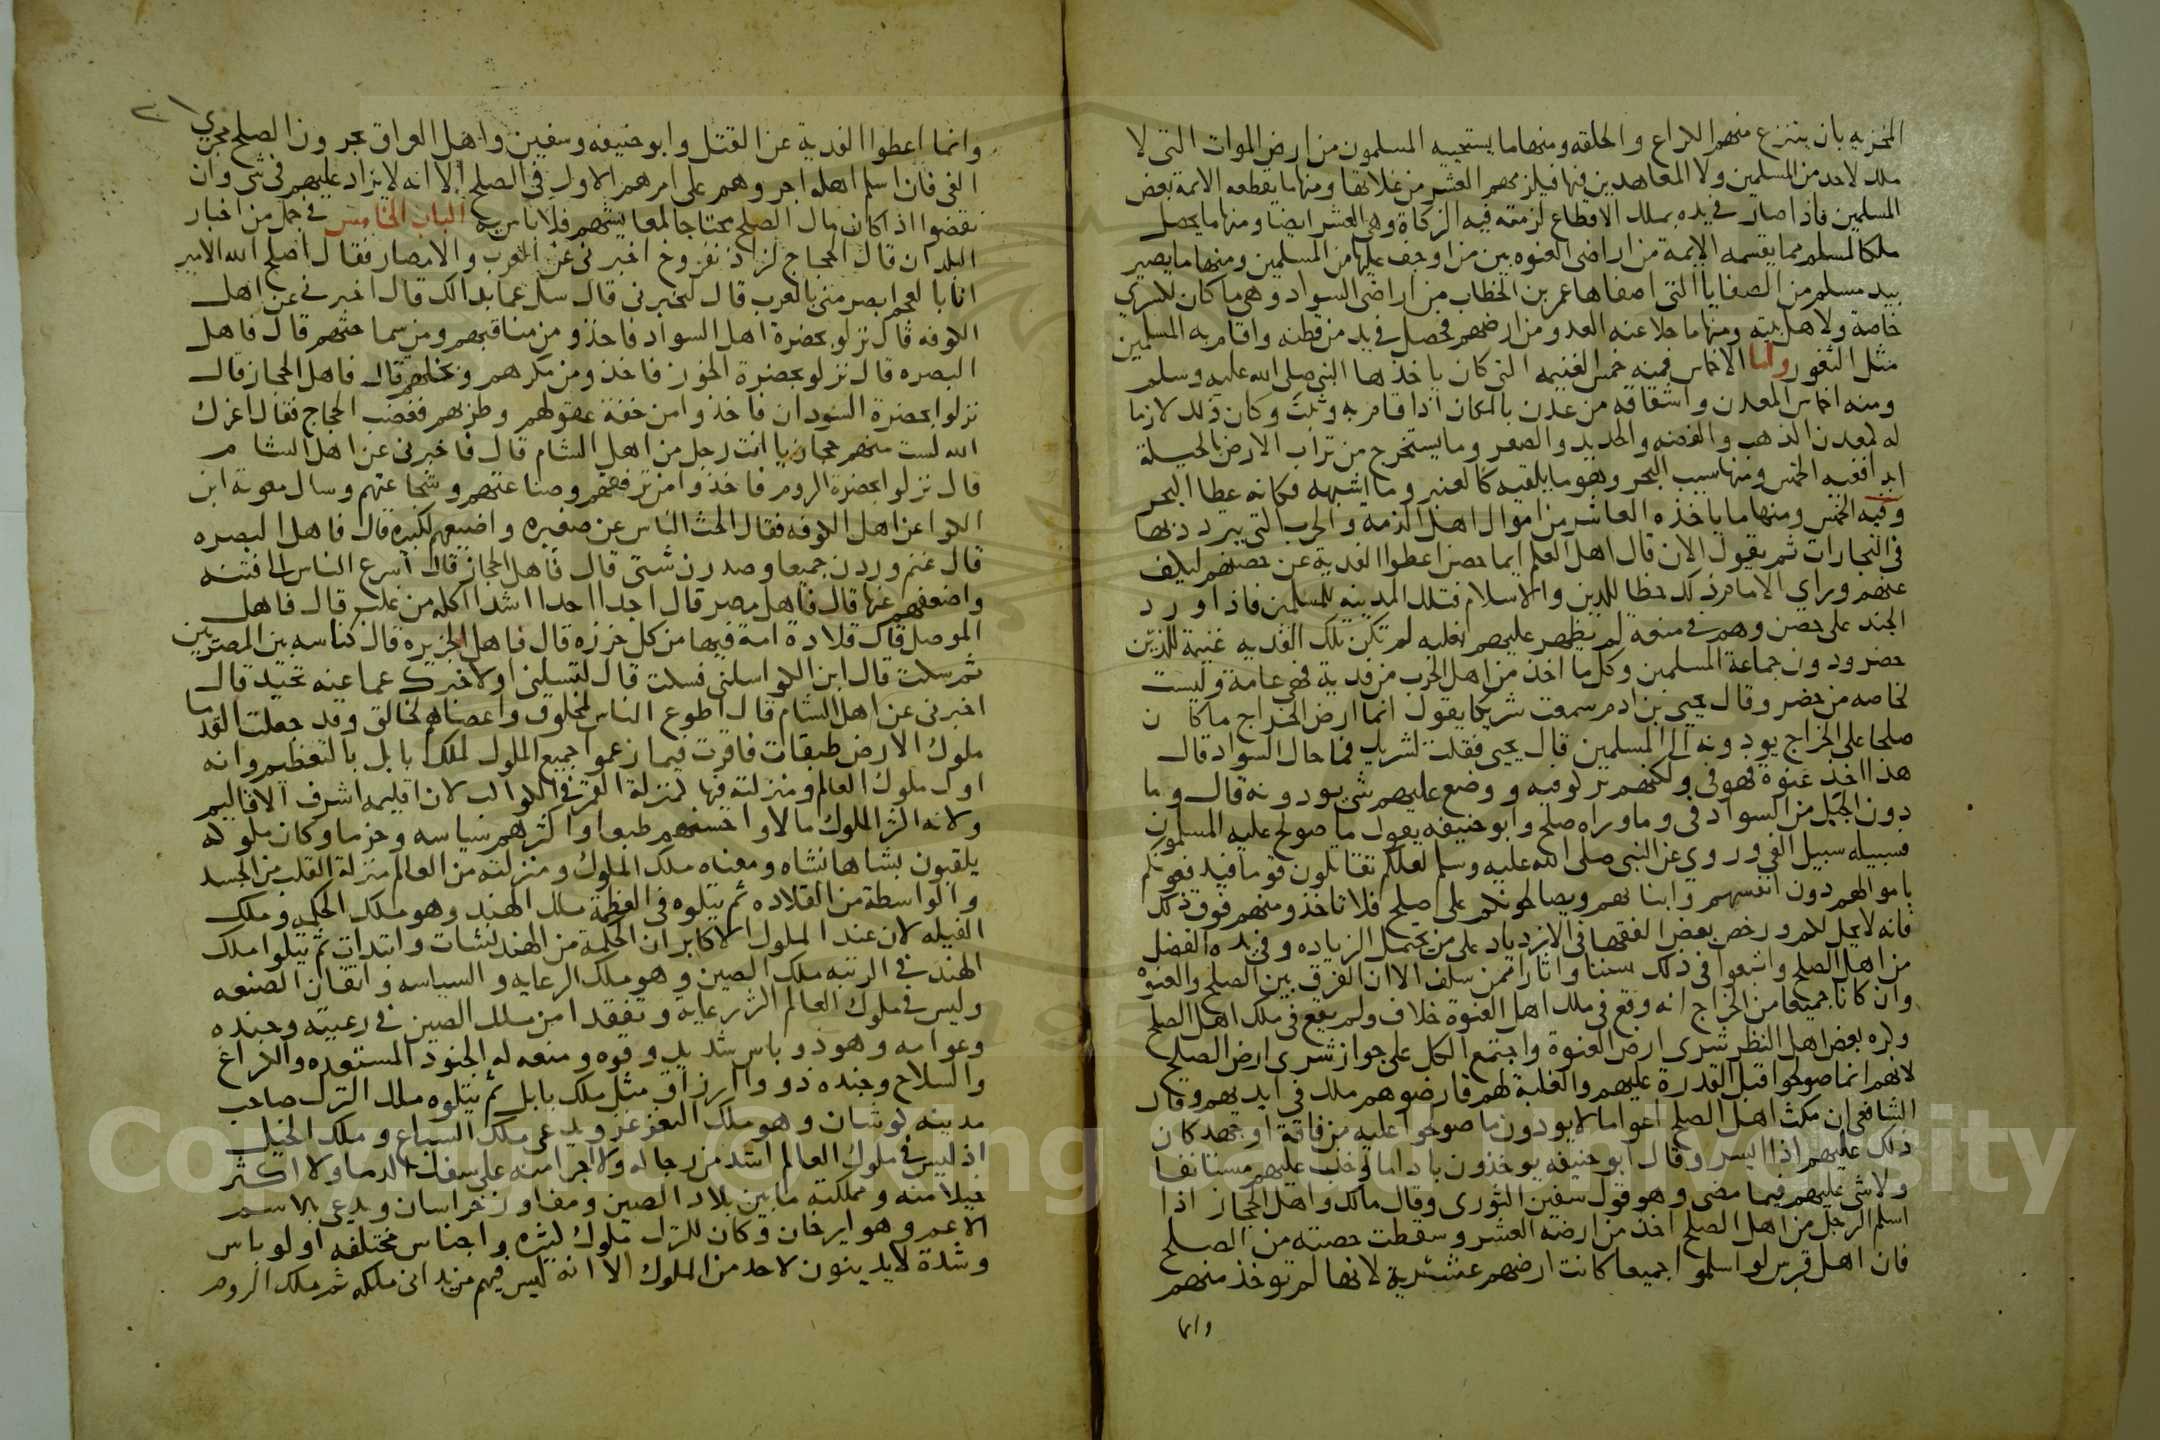 المخزيه بان ينتزع منهم الكراع والحلقه ومنها ما يستحييه المسلمون من ارض الموات التي لا
ملك لاحد من المسلمين ولا المعاهدين فيها فيلزمهم العشر من غلاتها ومنها ما يقطعه الايمة بعض
المسلمين فاذا صار في يده بملك الاقطاع لزمته فيه الزكاة وهي العشر ايضا ومنها ما يحصل
ملكا لمسلم مما يقسمه الايمة من اراضي العنوه بين من اوجف عليها من المسلمين ومنها ما يصير
بيد مسلم من الصفايا التي اصفاها عمر بن الخطاب من اراضي السواد وهي ما كان لكسري
خاصة ولاهل بيته ومنها ما جلا عنه العدو من ارضهم فحصل في يد من قطنه واقام به المسلمين
مثل الثغور واما الاخماس فمنه خمس الغنيمه التي كان ياخذها النبي صلى الله عليه وسلم
ومنه اخماس المعدن واشتقاقه من عدن بالمكان اذا قام به وثبت وكان ذلك لازما
له لمعدن الذهب والفضه والحديد والصفر وما يستخرج من تراب الارض بالحيلة
ابدا ففيه الخمس ومنها سيب البحر وهو ما يلقيه كالعنبر وما اشبهه فكانه عطا البحر
وفيه الخمس ومنها ما ياخذه العاشر من اموال اهل الذمه والحرب التي يترددون بها
في التجارات ثم يقول الان قال اهل العلم ايما حصن اعطوا الفدية عن حصنهم ليكف
عنهم وراي الامام ذلك حظا للدين والاسلام فتلك المدينه للمسلمين فاذا ورد
الجند على حصن وهم في منعة لم يظهر عليهم بغلبه لم تكن تلك الفديه غنيمة للذين
حضروا دون جماعة المسلمين وكل ما اخذ من اهل الحرب من فدية فهي عامة وليست
لخاصه من حضر وقال يحيى بن ادم سمعت شريكا يقول انما ارض الخراج ما كان
صلحا على الخراج يودونه الى المسلمين قال يحيى فقلت لشريك فما حال السواد قال
هذا اخذ عنوة فهو في ولكنهم تركوا فيه ووضع عليهم شي يودونه قال وما
دون الجبل من السواد في وما وراه صلح وابو حنيفه يقول ما صولح عليه المسلمون
فسبيله سبيل الفي وروي عن النبي صلى الله عليه وسلم لعلكم تقاتلون قوما فيدفعونكم
باموالهم دون انفسهم وابنايهم ويصالحونكم على صلح فلا تاخذوا منهم فوق ذلك
فانه لا يحل لكم ورخص بعض الفقها في الازدياد على من يحتمل الزياده وفي يده الفضل
من اهل الصلح واتبعوا في ذلك سننا واثارا ممن سلف الا ان الفرق بين الصلح والعنوة
وان كانا جميعا من الخراج انه وقع في ملك اهل العنوة خلاف ولم يقع في ملك اهل الصلح
وكره بعض اهل النظر شرى ارض العنوة واجتمع الكل على جواز شرى ارض الصلح
لانهم انما صولحوا قبل القدرة عليهم والغلبة لهم فارضوهم ملك في ايديهم وقال
الشافعي ان مكث اهل الصلح اعواما لا يودون ما صولحوا عليه من فاقة او جهد كان
ذلك عليهم اذا ايسروا وقال ابو حنيفه يوخذون باداما وجب عليهم مستانفا
ولا شي عليهم فيما مضى وهو قول سفين الثوري وقال مالك واهل الحجاز اذا
اسلم الرجل من اهل الصلح اخذ من ارضه العشر وسقطت حصته من الصلح
فان اهل قبرس لو اسلموا جميعا كانت ارضهم عشرية لانها لم توخذ منهم
وانما
وانما اعطوا الفدية عن القتل وابو حنيفه وسفين واهل العراق يجرون الصلح مجرى
الفي فان اسلم اهله اجروهم على امرهم الاول في الصلح الا انه لا يزاد عليهم في شي وان
نقضوا اذا كان مال الصلح محتاجا لمعايشهم فلا باس به الباب الخامس في جمل من اخبار
البلدان قال الحجاج لزاذنفروخ اخبرني عن العرب والامصار فقال اصلح الله الامير
انا بالعجم ابصر مني بالعرب قال لتخبرني قال سل عما بدا لك قال اخبرني عن اهل
الكوفه قال نزلوا بحضرة اهل السواد فاخذوا من مناقبهم ومن سماحتهم قال فاهل
البصره قال نزلوا بحضرة الخوز فاخذوا من مكرهم وبخلهم قال فاهل الحجاز قال
نزلوا بحضرة السودان فاخذوا من خفة عقولهم وطربهم فغضب الحجاج فقال اعزك
الله لست منهم حجازيا انت رجل من اهل الشام قال فاخبرني عن اهل الشام
قال نزلوا بحضرة الروم فاخذوا من ترفقهم وصناعتهم وشجاعتهم وسال معوية ابن
الكوا عن اهل الكوفه فقال ابحث الناس عن صغيره واضيعهم لكبيره قال فاهل البصره
قال غنم وردن جميعا وصدرن شتى قال فاهل الحجاز قال اسرع الناس الى فتنه
واضعفهم عنها قال فاهل مصر قال اجدا اجدا اشدا اكله من غلب قال فاهل
الموصل قال قلادة امة فيها من كل خرزه قال فاهل الجزيره قال كناسه بين المصرين
ثم سكت قال ابن الكوا سلني فسكت قال لتسلني او لاخبرك عما عنه تحيد قال
اخبرني عن اهل الشام قال اطوع الناس لمخلوق واعصاهم لخالق وقد جعلت القدما
ملوك الارض طبقات فاقرت فيما زعموا جميع الملوك لملك بابل بالتعظيم وانه
اول ملوك العالم ومنزلته فيها كمنزلة القمر في الكواكب لان اقليمه اشرف الاقاليم
ولانه اكثر الملوك مالا واحسنهم طبعا واكثرهم سياسه وحزما وكان ملوكه
يلقبون بشاهانشاه ومعناه ملك الملوك ومنزلته من العالم منزلة القلب من الجسد
والواسطة من القلاده ثم يتلوه في العظمة ملك الهند وهو ملك الحكمة وملك
الفيله لان عند الملوك الاكابر ان الحكمة من الهند نشات وابتدات ثم يتلوا ملك
الهند في الرتبه ملك الصين وهو ملك الرعايه والسياسه واتقان الصنعه
وليس في ملوك العالم اكثر رعاية وتفقدا من ملك الصين في رعيته وجنده
وعوامه وهو ذو باس شديد وقوه ومنعه له الجنود المستعده والكراع
والسلاح وجنده ذووا ارزاق مثل ملك بابل ثم يتلوه ملك الترك صاحب
مدينه كوشان وهو ملك التغزغز ويدعى ملك السباع وملك الخيل
اذ ليس في ملوك العالم اشد من رجاله ولا اجرا منه على سفك الدما ولا اكثر
خيلا منه ومملكته ما بين بلاد الصين ومفاوز خراسان ويدعى بالاسم
الاعم وهو ايرخان وكان للترك ملوك كثيره واجناس مختلفه اولو باس
وشدة لا يدينون لاحد من الملوك الا انه ليس فيهم من يداني ملكه ثم ملك الروم
Copyright © King Saud University